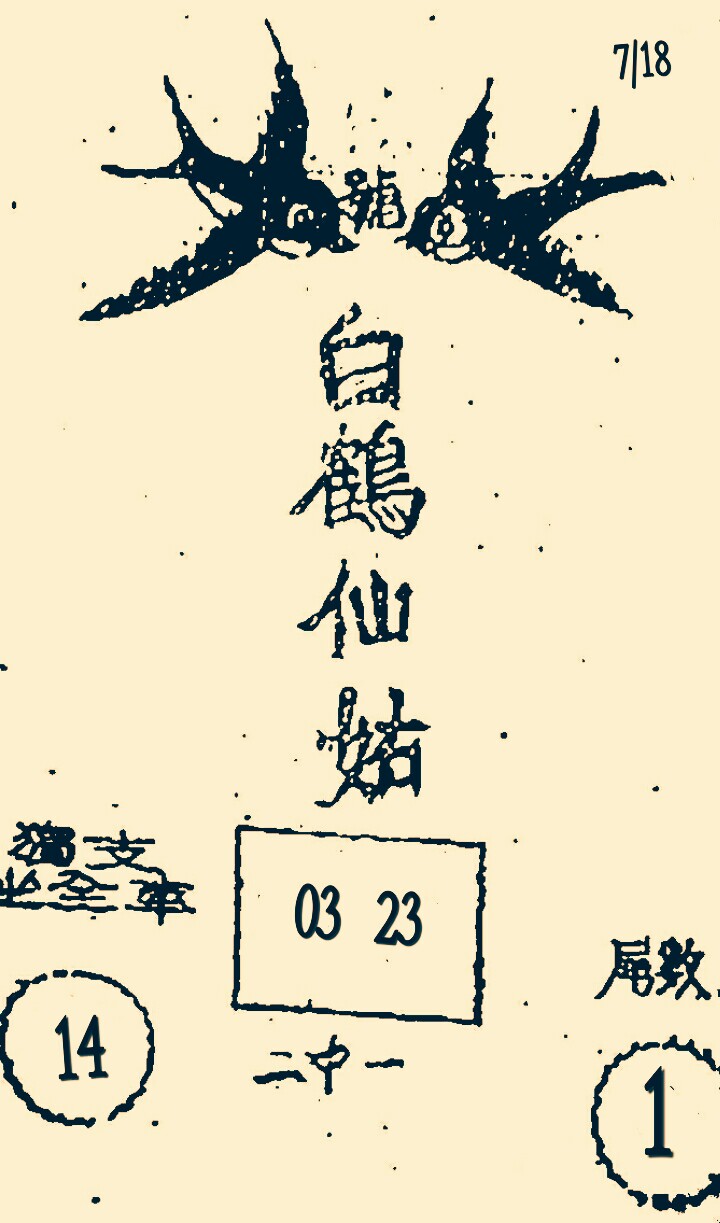 7/18
白鶴仙姑
獨支
坐全車
03 23
尾數
14
二中一
1